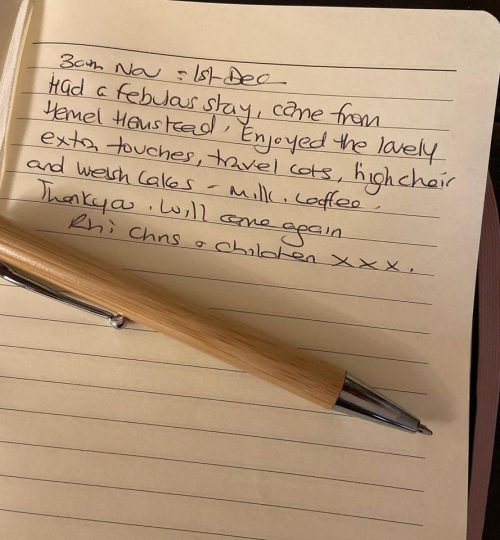 30th Nov - 1st Dec
Had a febulas stay, came from
Hemel Hemstead. Enjoyed the lovely
extra touches, travel cots, high chair
and welsh cakes - milk. Coffee.
Thankyou. Will come again
Rhi Chris & Children xxx.